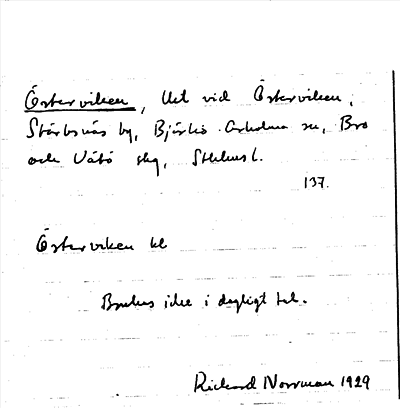 Österviken, Utl vid Österviken,
Stärbsnäs by, Björkö-Arholma sn, Bro
och Vätö skg, Sthlms l.
137.
Österviken kl
Brukas icke i dagligt tal.
Richard Norrman 1929